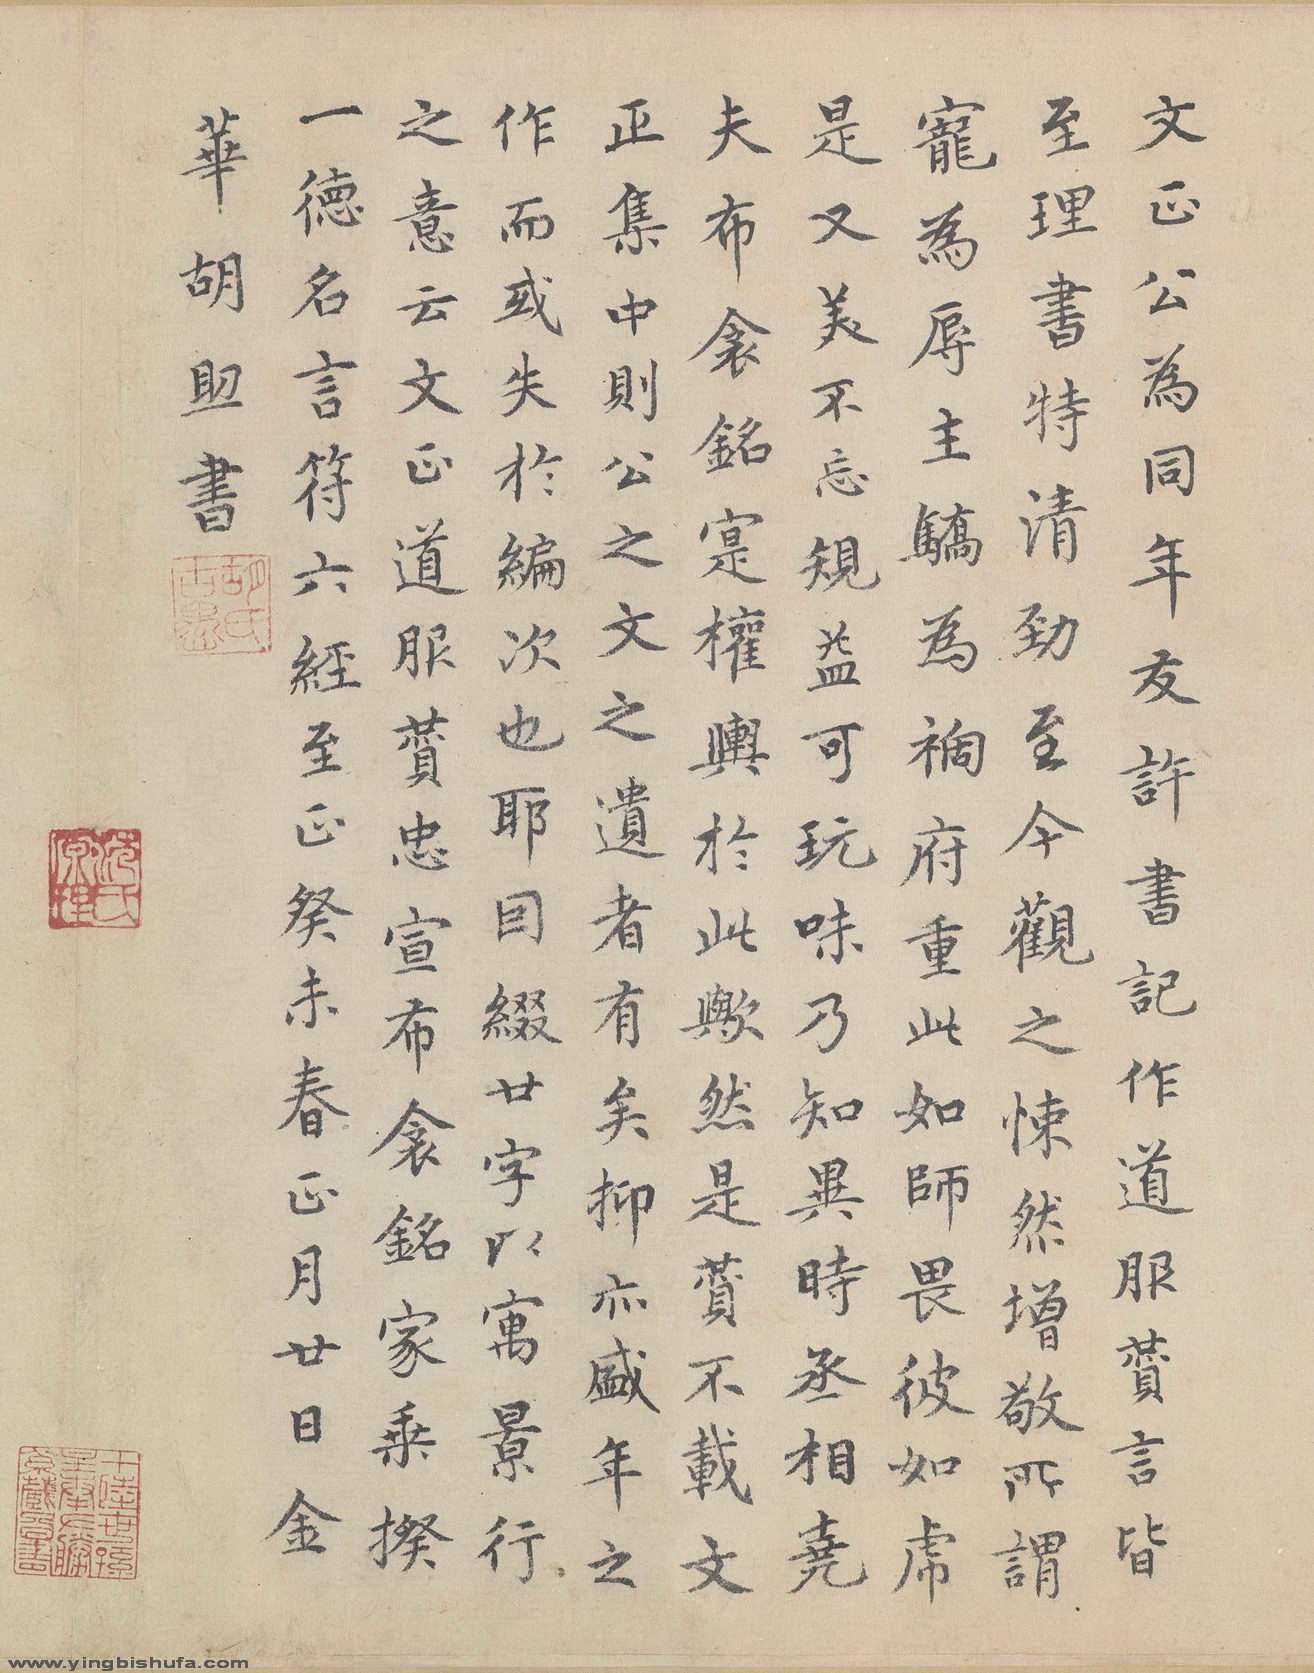 文正公為同年友許書記作道服贊言皆
至理書特清勁至今觀之悚然增敬所謂
寵為辱主驕為禍府重此如師畏彼如虎
是又美不忘規益可玩味乃知異時丞相堯
夫布衾銘寔權輿於此歟然是贊不載文
正集中則公之文之遺者有矣抑亦盛年之
作而或失於編次也耶因綴廿字以寓景行
之意云文正道服贊忠宣布衾銘家乘揆
一德名言符六經至正癸未春正月廿日金
華胡助書
www.yingbishufa.com